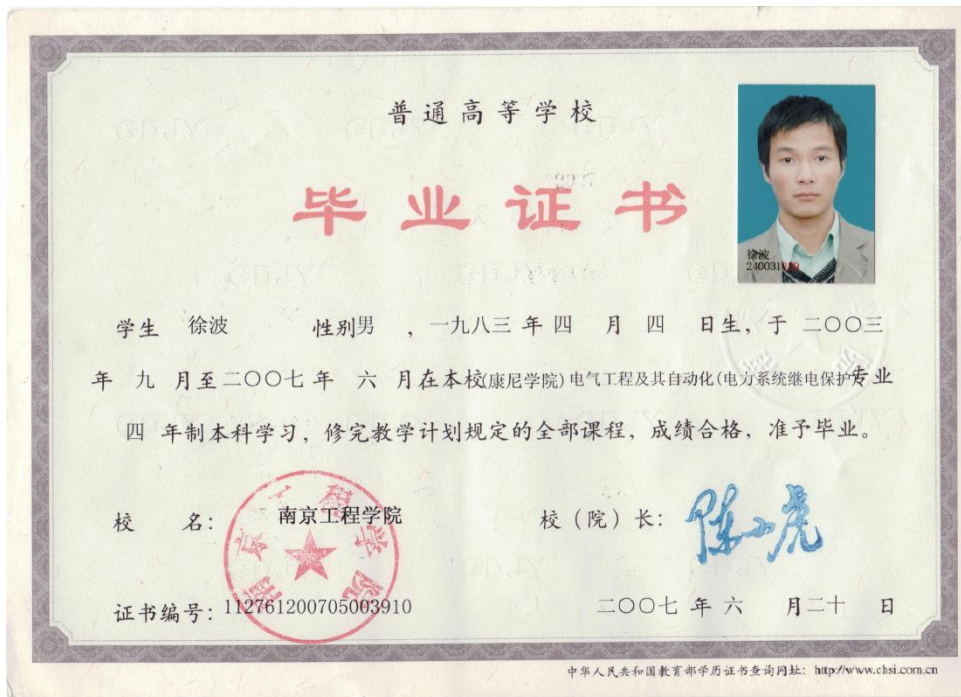 普通高等学校
毕业证书
徐波
学生 徐波 性别男 ，一九八三 年 四 月 四 日生，于 二〇〇三
年 九 月至二〇〇七 年 六 月在本校(康尼学院) 电气工程及其自动化(电力系统继电保护专业
四 年制本科学习，修完教学计划规定的全部课程，成绩合格，准予毕业。
校 名： 南京工程学院 校（院）长： 陈小虎
南京工程学院
证书编号：112761200705003910 二〇〇七 年 六 月二十 日
中华人民共和国教育部学历证书查询网址：http://www.chsi.com.cn